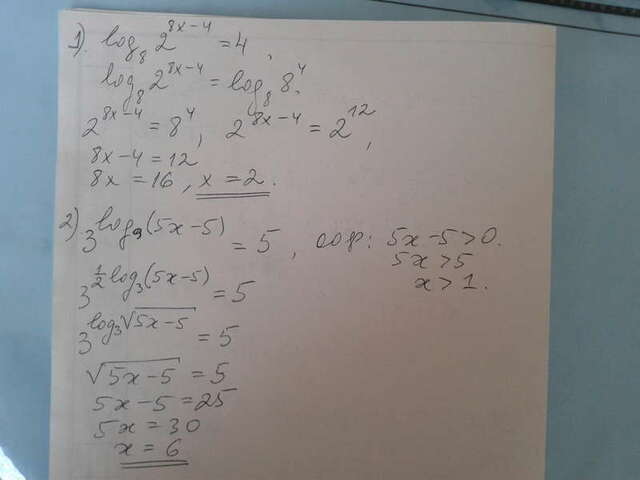 1). log₈ 2^(8x-4) = 4,
log₈ 2^(8x-4) = log₈ 8⁴,
2^(8x-4) = 8⁴, 2^(8x-4) = 2^12,
8x-4 = 12
8x = 16, x = 2.
2) 3^(log₉(5x-5)) = 5, oop: 5x-5>0.
5x>5
x>1.
3^(½log₃(5x-5)) = 5
3^(log₃√(5x-5)) = 5
√(5x-5) = 5
5x-5 = 25
5x = 30
x = 6